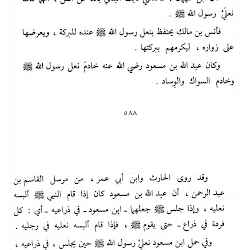 نعلَيْ رسول الله ﷺ .
فأنس بن مالك يحتفظ بنعل رسول الله ﷺ عنده للبركة ، ويعرضها
على زواره ، ليكرمهم ببركتها .
وكان عبد الله بن مسعود رضي الله عنه خادمَ نعلِ رسول الله ﷺ
وخادم السواك والوساد .
٥٨٨
وقد روى الحارث وابن أبي عمر ، من مرسل القاسم بن
عبد الرحمن ، أن عبد الله بن مسعود كان إذا قام النبي ﷺ ألبسه
نعليه ، وإذا جلس ﷺ جعلهما ـ ابن مسعود ـ في ذراعيه ـ أي : كل
فردة في ذراع ـ حتى يقوم ﷺ ، فإذا قام ألبسه نعليه في رجليه .
وفي حمل ابن مسعود نعلَيْ رسول الله ﷺ حين يجلس ، في ذراعيه ،